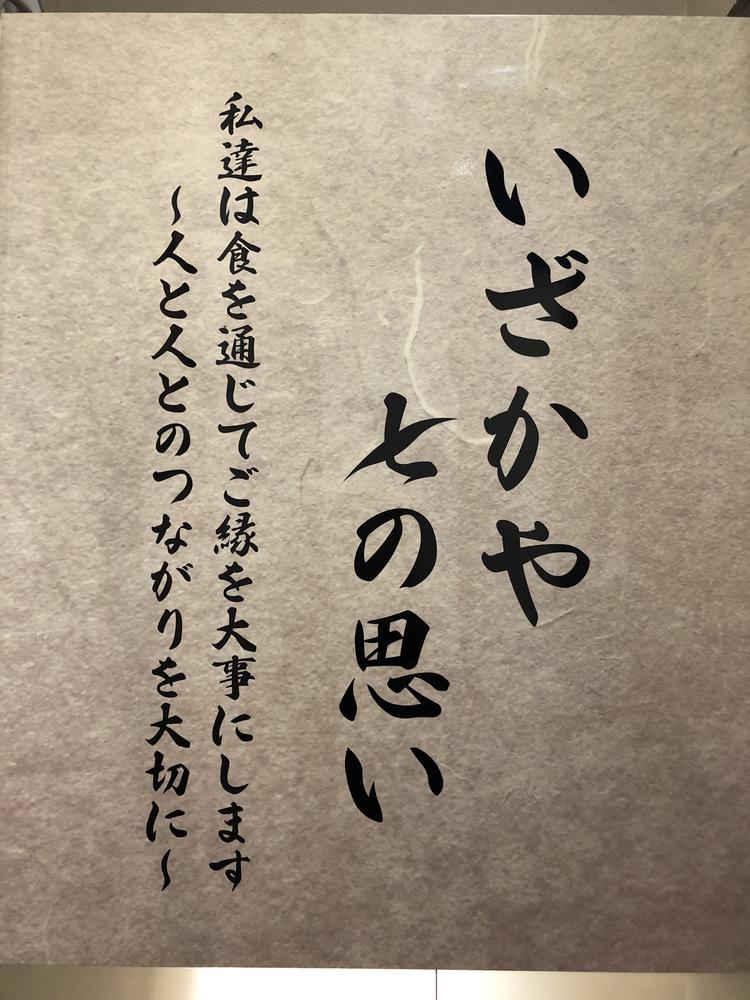 いざかや
七の思い
私達は食を通じてご縁を大事にします
～人と人とのつながりを大切に～